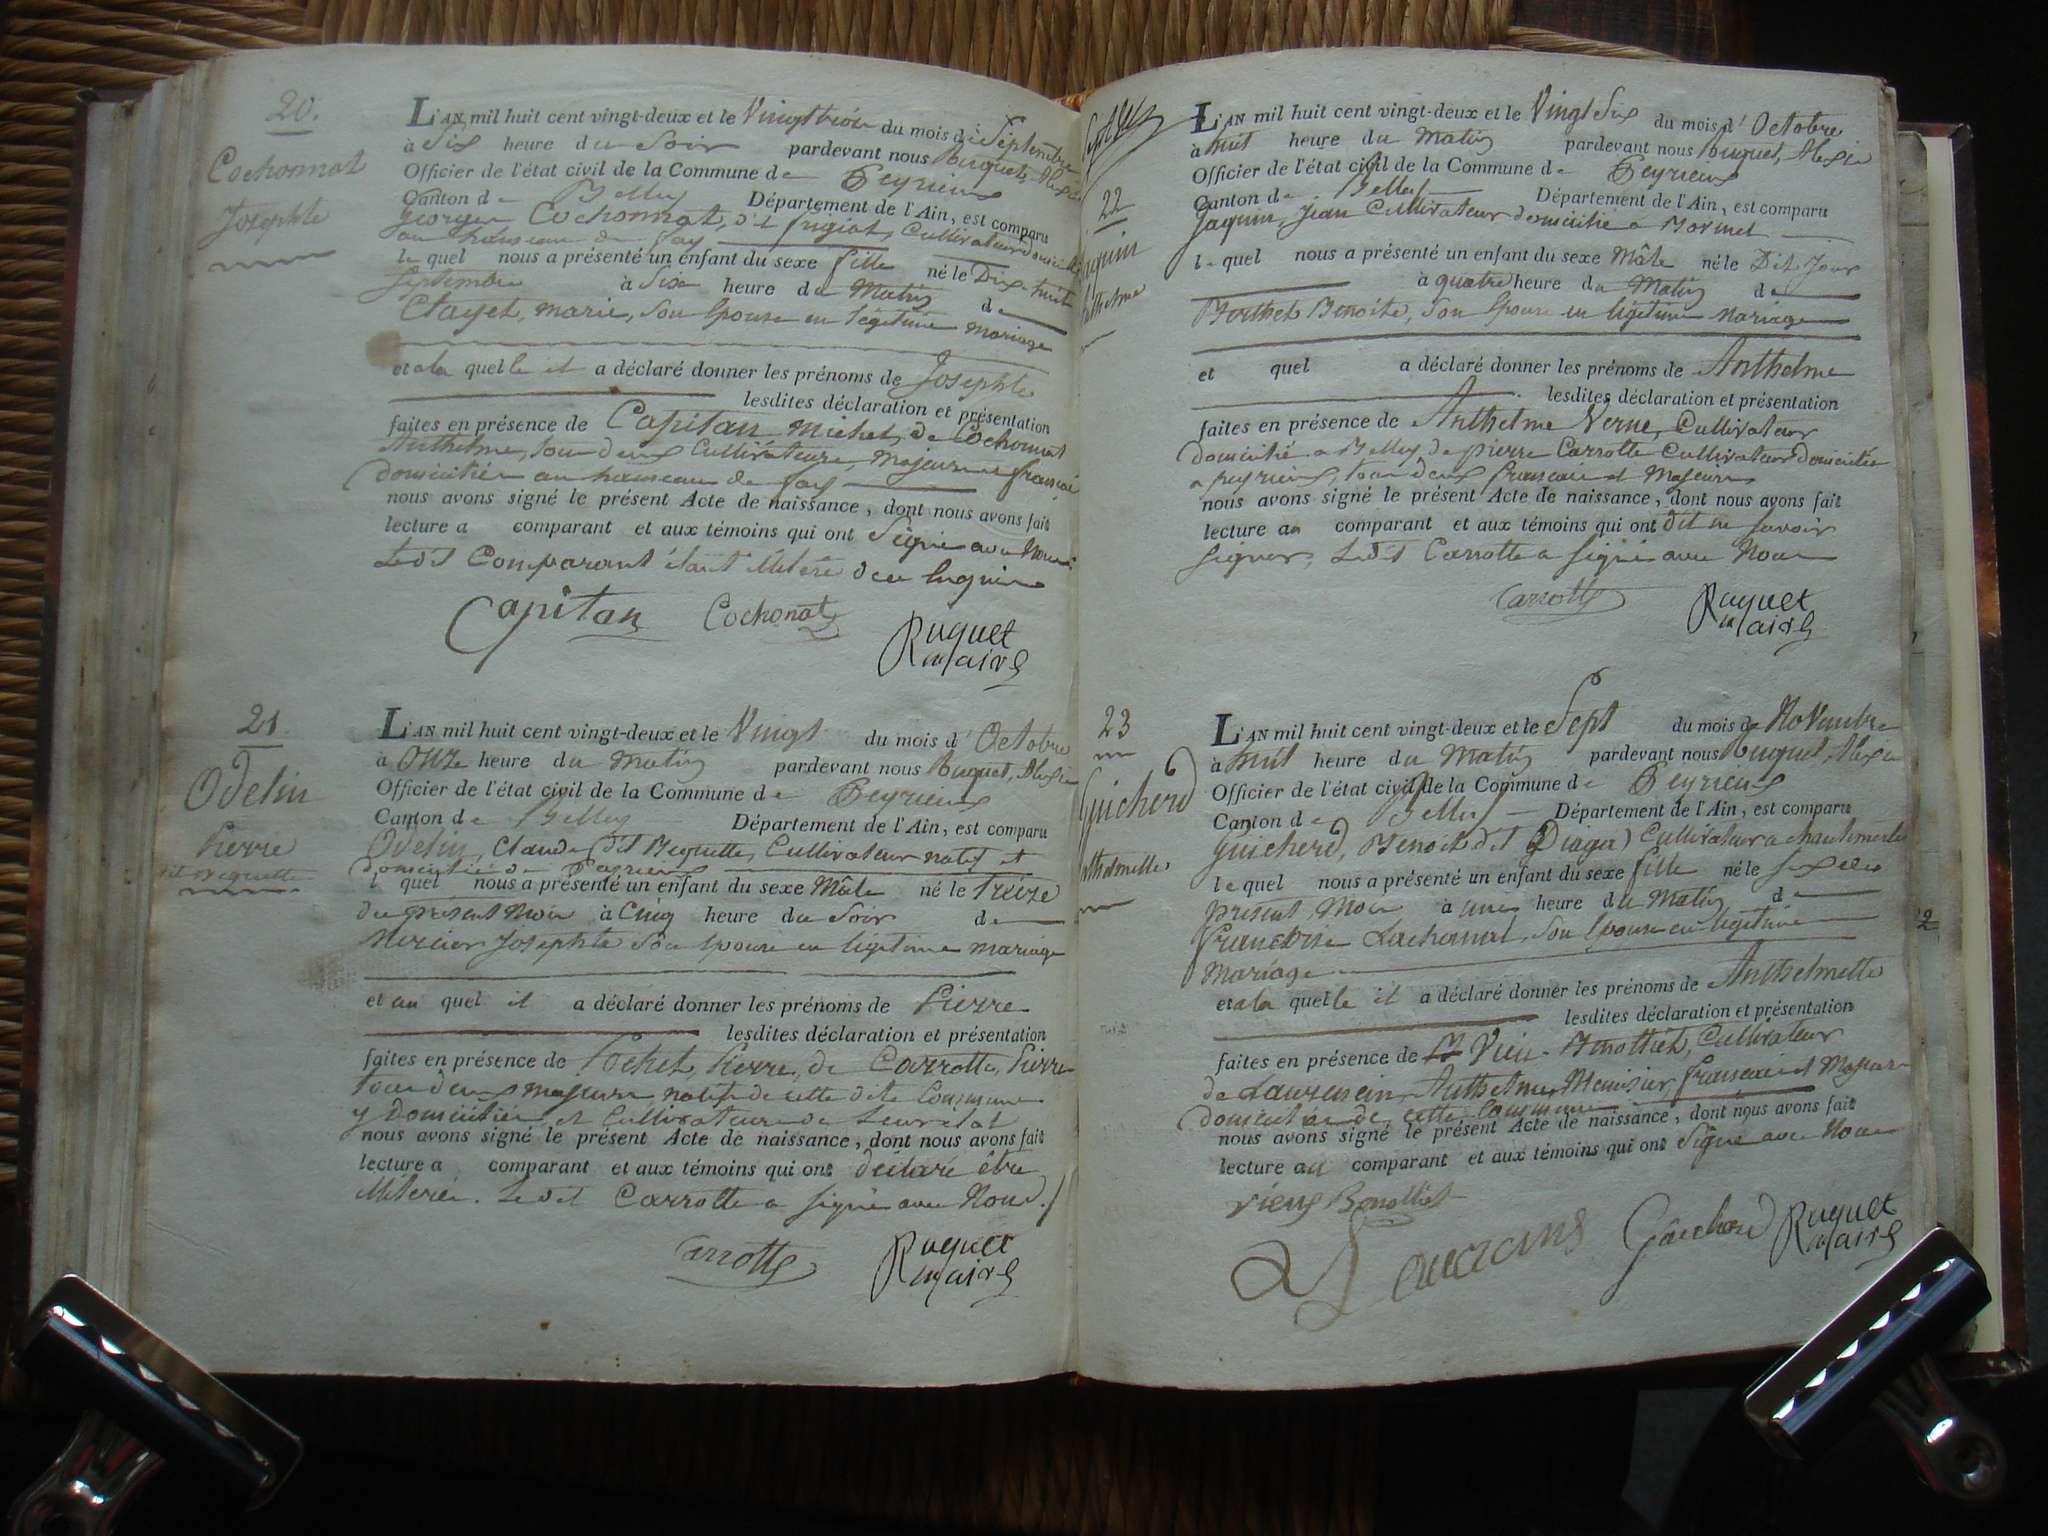 20.
Cochonnat
Josephte
L'AN mil huit cent vingt-deux et le Vingt trois du mois de Septembre
à Six heure du Soir pardevant nous Ruquet, Alexis
Officier de l'état civil de la Commune de Peyrieux
Canton de Belley Département de l'Ain, est comparu
george Cochonnat, dit Cultivateur domicilié
au hameau de fay
le quel nous a présenté un enfant du sexe fille né le Dix-huit
Septembre à Six heure du Matin de
Clayet, marie, Son Epouse en légitime Mariage
et a la quelle il a déclaré donner les prénoms de Josephte
lesdites déclaration et présentation
faites en présence de Capitan Michel, de Cochonnat
Anthelme, tous deux Cultivateurs, Majeurs et français
domiciliés au hameau de fay
nous avons signé le présent Acte de naissance, dont nous avons fait
lecture a comparant et aux témoins qui ont Signé avec Nous
Ledit Comparant étant illiteré de ce Enquis
Capitan Cochonat Ruquet
maire
21
Odelin
Pierre
dit
L'AN mil huit cent vingt-deux et le Vingt du mois d' Octobre
à Onze heure du Matin pardevant nous Ruquet, Alexis
Officier de l'état civil de la Commune de Peyrieux
Canton de Belley Département de l'Ain, est comparu
Odelin, Claude, dit Cultivateur natif et
Domicilié de Peyrieux
l quel nous a présenté un enfant du sexe Mâle né le Treize
du présent Mois à Cinq heure du Soir de
Mercier Josephte Son Epouse en légitime mariage
et au quel il a déclaré donner les prénoms de Pierre
lesdites déclaration et présentation
faites en présence de Pierre, de Carrotte, Pierre
tous deux majeurs natifs de cette dite Commune
y Domiciliés, et Cultivateurs de Leur état
nous avons signé le présent Acte de naissance, dont nous avons fait
lecture a comparant et aux témoins qui ont déclaré être
illiterés. Ledit Carrotte a Signé avec Nous./
Carrotte Ruquet
maire
22
Anthelme
L'AN mil huit cent vingt-deux et le Vingt Six du mois d' Octobre
à huit heure du Matin pardevant nous Ruquet, Alexis
Officier de l'état civil de la Commune de Peyrieux
Canton de Belley Département de l'Ain, est comparu
Jaquin, Jean Cultivateur domicilié a
le quel nous a présenté un enfant du sexe Mâle né le Dit Jour
à quatre heure du Matin de
Berthet Benoite, Son Epouse en légitime Mariage
et quel a déclaré donner les prénoms de Anthelme
lesdites déclaration et présentation
faites en présence de Anthelme Verne, Cultivateur
domicilié a Belley de pierre Carrotte Cultivateur domicilié
a peyrieux, tous deux français et Majeurs
nous avons signé le présent Acte de naissance, dont nous avons fait
lecture au comparant et aux témoins qui ont dit ne Savoir
Signer, Ledit Carrotte a Signé avec Nous
Carrotte Ruquet
maire
23
Guicherd
L'AN mil huit cent vingt-deux et le Sept du mois de Novembre
à huit heure du Matin pardevant nous Ruquet, Alexis
Officier de l'état civil de la Commune de Peyrieux
Canton de Belley Département de l'Ain, est comparu
Guicherd, Benoit dit Cultivateur a chantemerle
le quel nous a présenté un enfant du sexe fille né le six du
présent Mois à une heure du Matin de
françoise Son Epouse en légitime
Mariage
et a la quelle il a déclaré donner les prénoms de Anthelmette
lesdites déclaration et présentation
faites en présence de Vieu Benottiet, Cultivateur
de Laurensein, Anthelme, Menisier, français et Majeurs
domiciliés de cette Commune
nous avons signé le présent Acte de naissance, dont nous avons fait
lecture au comparant et aux témoins qui ont Signé avec Nous
vieux
Guicherd Ruquet
maire